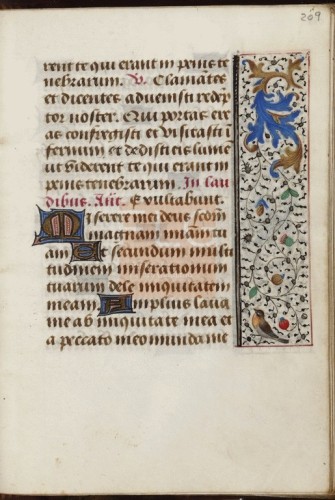 209
rent te qui erant in penis te
nebrarum. V. Clamātes
et dicentes advenisti redēp
tor noster. Qui portas ere
as confregisti et visitasti i
fernum et dedisti eis lumē
ut viderent te qui erant in
penis tenebrarum. In lau
dibus. Añt. Exultabunt.
Miserere mei deus scđm
magnam miām tu
am Et secundum multi
tudinem miserationum
tuarum dele iniquitatem
meam. Amplius lava
me ab iniquitate mea et
a peccato meo munda me